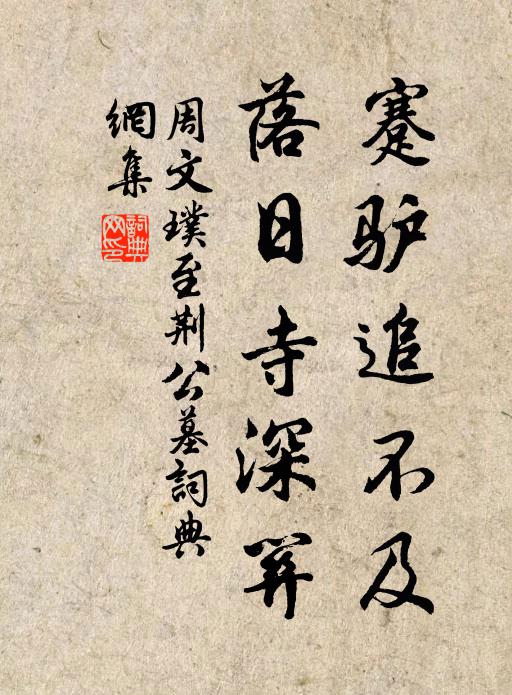 蹇驴追不及
落日寺深關
周文璞至荆公墓詞典
網集
詞典
网印